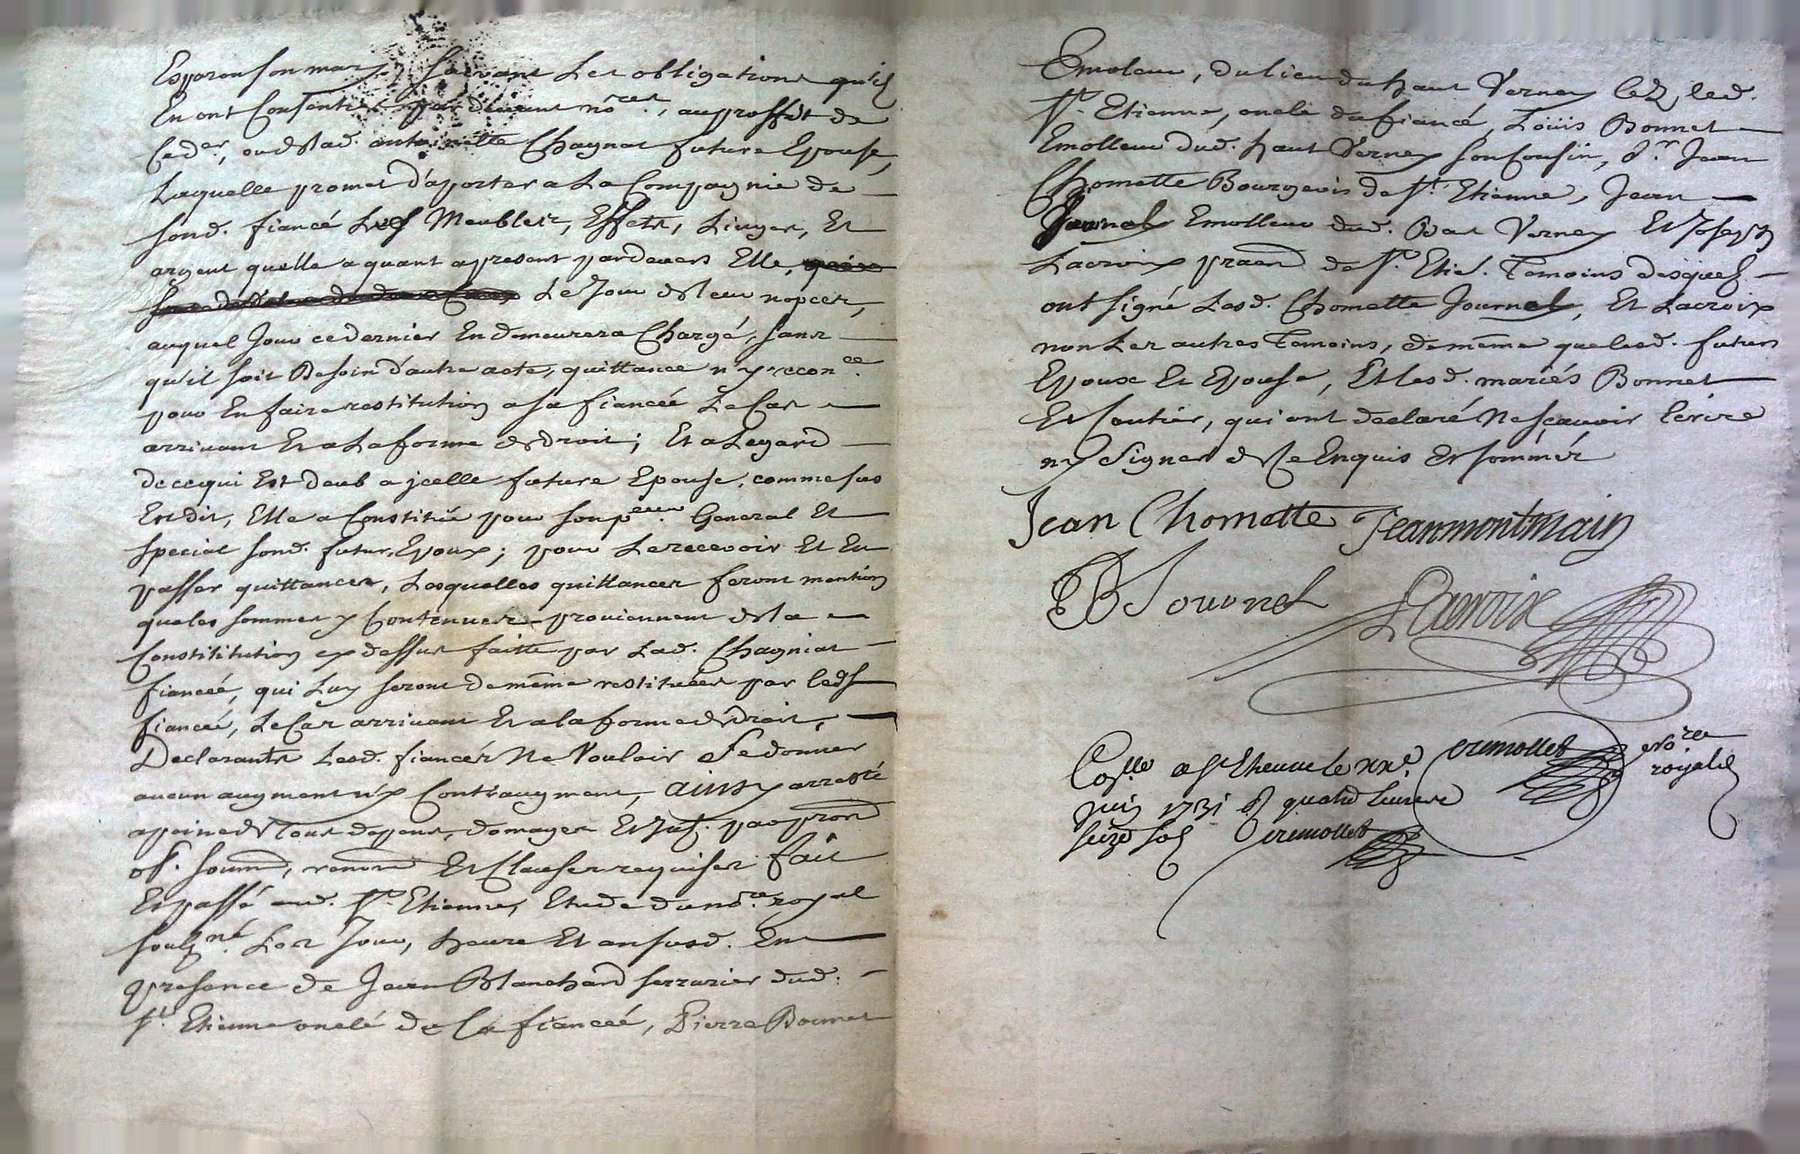 Esparon son mary suivant les obligations qu'ils
En ont Consenties par devant no.res, au proffit de
Ced.er, ou de lad. antoinette Chagnat future Epouse,
Laquelle promet d'aporter a La Compagnie de
sond. fiancé Les Meubles, Effets, Linges, Et
argent quelle a quant a present pardevers Elle,
Le Jour de leur nopces,
auquel Jour ce dernier En demeurera Chargé, sans
qu'il soit Besoin d'autre acte, quittance ny recon.ce
pour En faire restitution a sa fiancée Le Cas
arrivant Et a La forme de droit; Et a Legard
de ce qui Est deub a jcelle future Epouse, comme sus
Est dit, Elle a Constitué pour son p.eur General Et
special sond. futur Epoux; pour Le recevoir Et En
passer quittances, Lesquelles quittances feront mention
que les sommes y Contenues proviennent de la
Constitution cy dessus faitte par Lad. Chagniat
fiancée, qui Luy seront de même restituées par led.
fiancé, Le Cas arrivant Et a la forme de droit,
Declarants Lesd. fiancés Ne Vouloir Se donner
aucun augment ny Contraugment, ainsy arresté
a peine de Tous depens, domages Et Int.
ob. soum, renon Et Clauses requises fait
Et passé aud. S.t Etienne, Etude du no.re royal
soub.né Les Jour, heure Et an susd. En
presence de Jean Blanchard serrurier dud.
S.t Etienne oncle de La fiancée, Pierre Bonnet
Emoleur, du lieu du haut Verney lez led.
S.t Etienne, oncle du fiancé, Loüis Bonnet
Emolleur dud. haut Verney son Cousin, S.r Jean
Chomette Bourgeois de S.t Etienne, Jean
Journel Emolleur dud. Bas Verney Et Joseph
Lacroix praen de S.t Etie. Temoins desquels
ont signé Lesd. Chomette Journel, Et Lacroix
non Les autres Temoins, de même que lesd. futurs
Epoux Et Epouse, Et lesd. mariés Bonnet
Et Soutier, qui ont declaré Ne sçavoir Ecrire
ny Signer de Ce Enquis Et sommés
Jean Chomette Jeanmontmain
B Journel Lacroix
Con.lle a St Etienne le xxe. Cremollet No.re
Juin 1731 R quatre livres royal
seize sols Cremollet